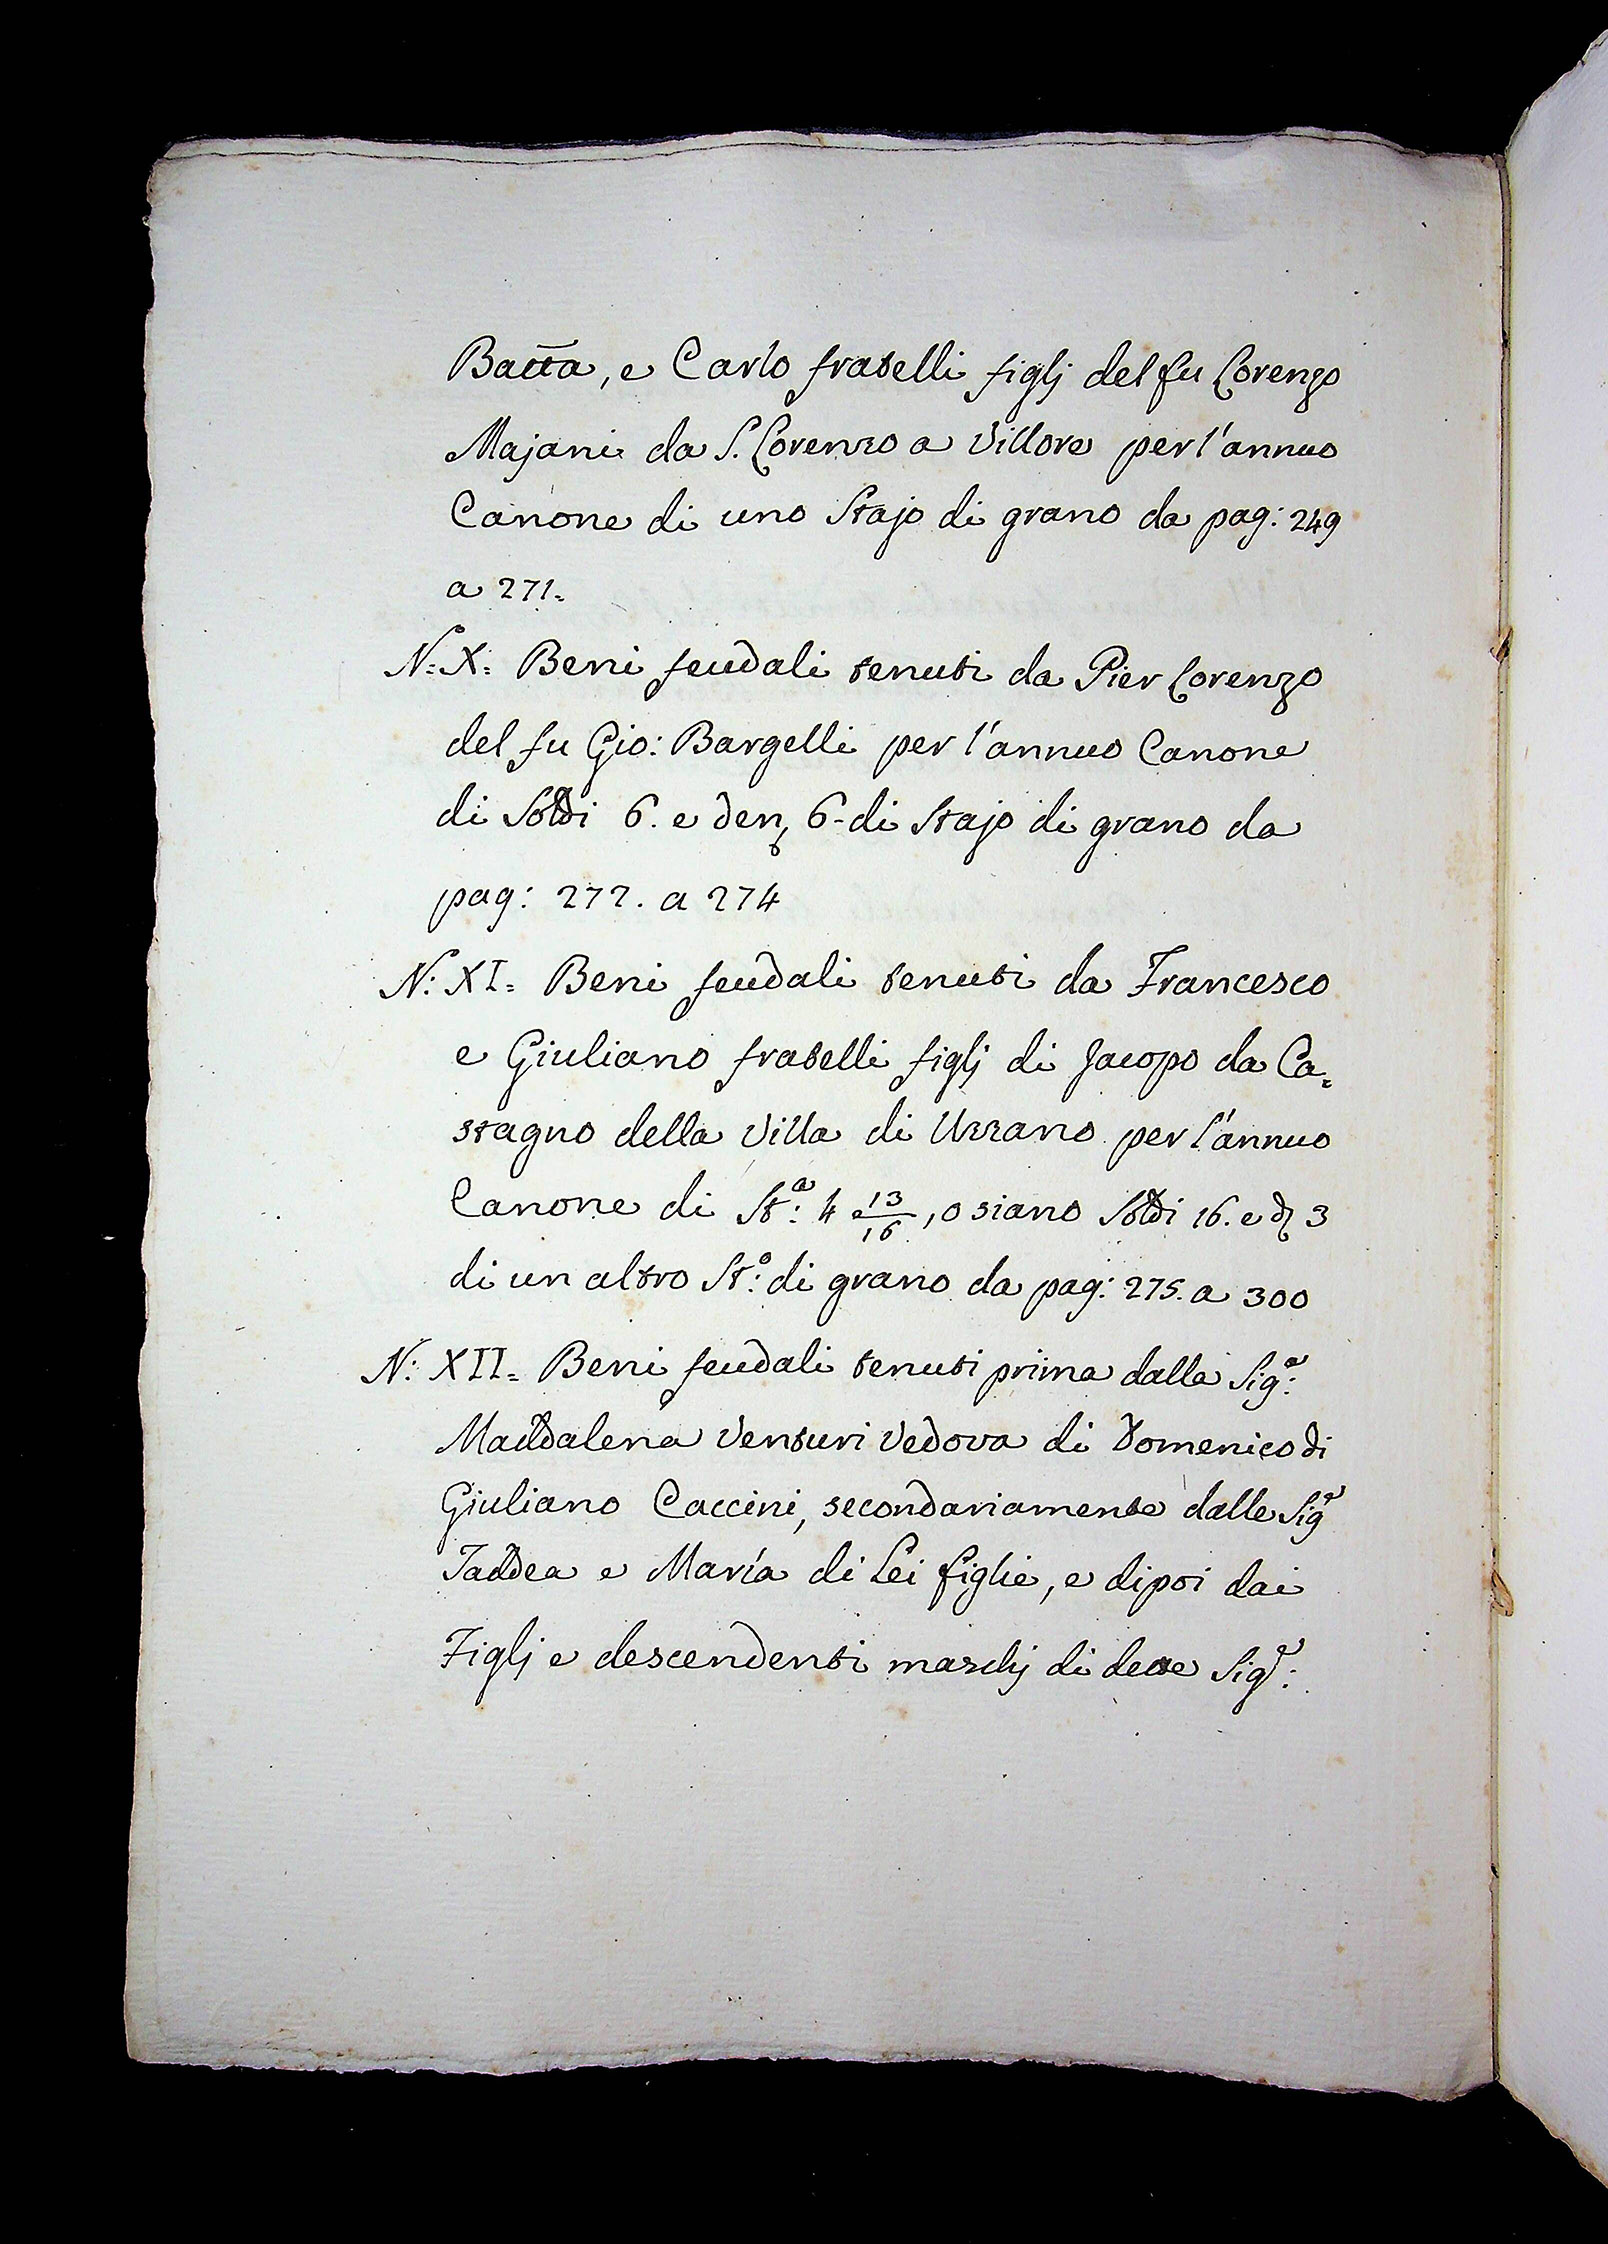 Batta, e Carlo fratelli figlj del fu Lorenzo
Majani da S. Lorenzo a Villore per l'annuo
Canone di uno Stajo di grano da pag: 249
a 271.
N: X. Beni feudali tenuti da Pier Lorenzo
del fu Gio: Bargelli per l'annuo Canone
di Soldi 6. e den, 6. di Stajo di grano da
pag: 272. a 274
N: XI. Beni feudali tenuti da Francesco
e Giuliano fratelli figlj di Jacopo da Ca=
stagno della Villa di Uzzano per l'annuo
Canone di St.ª: 4 13/16, o siano Soldi 16. e d 3
di un altro St.º: di grano da pag: 275. a 300
N: XII. Beni feudali tenuti prima dalla Sig.ª:
Maddalena Venturi Vedova di Domenico di
Giuliano Caccini, secondariamente dalle Sig.e
Taddea e María di Lei figlie, e dipoi dai
Figlj e descendenti maschj di dette Sig.e: